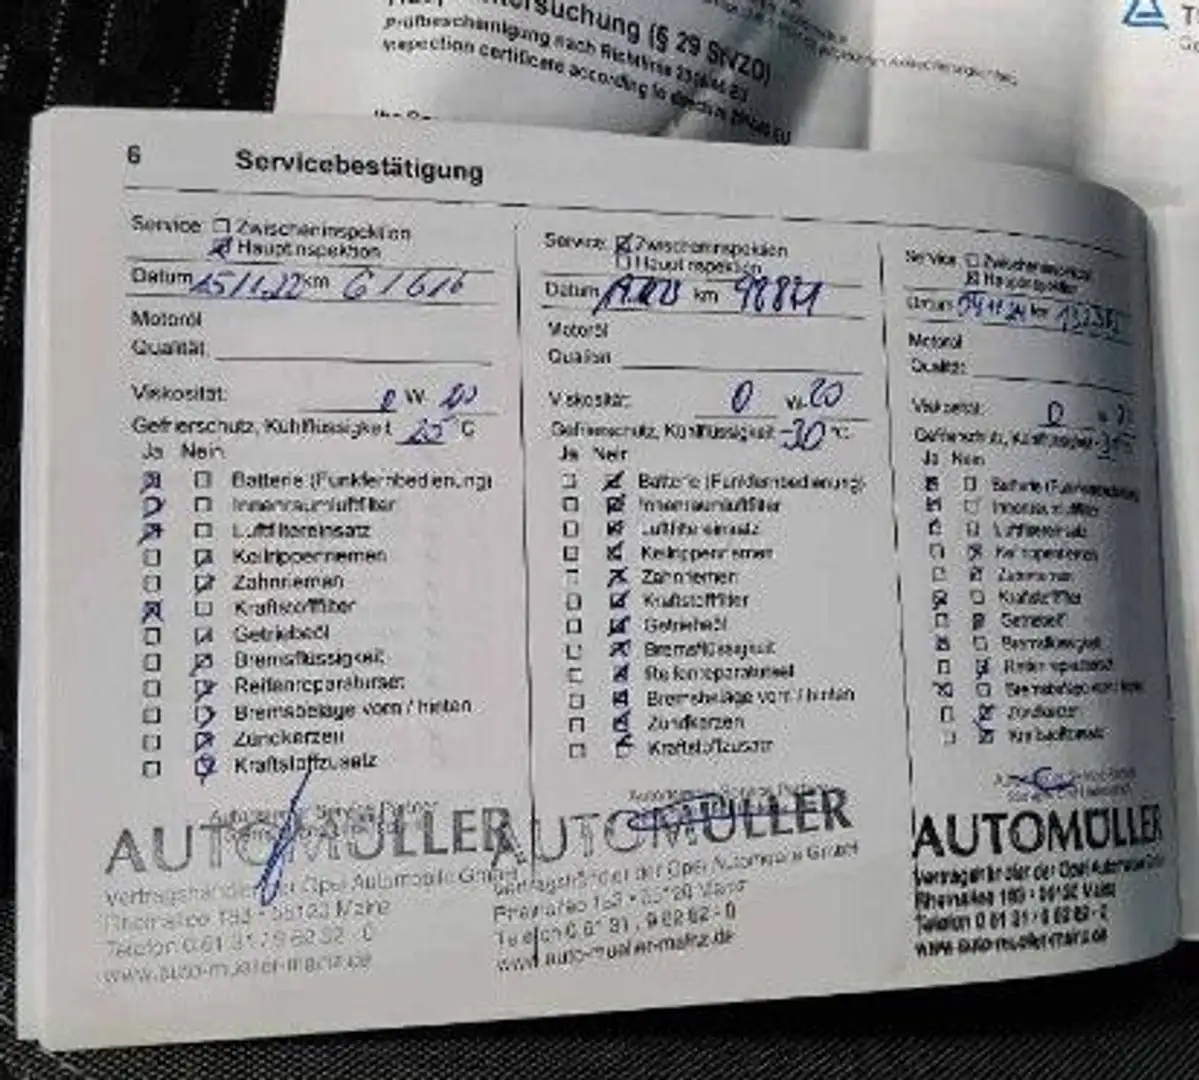 suchung (§ 29 StVZO)
Prüfbescheinigung nach Richtlinie
inspection certificate according to directive
6 Servicebestätigung
Service: Zwischeninspektion
Hauptinspektion
Datum 15.11.22 km 61616
Motoröl
Qualität:
Viskosität: 0 W 20
Gefrierschutz, Kühlflüssigkeit 25 °C
Ja Nein
Batterie (Funkfernbedienung)
Innenraumluftfilter
Luftfiltereinsatz
Keilrippenriemen
Zahnriemen
Kraftstofffilter
Getriebeöl
Bremsflüssigkeit
Reifenreparaturset
Bremsbeläge vorn / hinten
Zündkerzen
Kraftstoffzusatz
Service Partner
AUTOMÜLLER
Vertragshändler der Opel Automobile GmbH
Rheinallee 183 • 55120 Mainz
Telefon 0 61 31 / 9 62 62 - 0
www.auto-mueller-mainz.de
Service: Zwischeninspektion
Hauptinspektion
Datum km
Motoröl
Qualität
Viskosität: 0 W 20
Gefrierschutz, Kühlflüssigkeit -30 °C
Ja Nein
Batterie (Funkfernbedienung)
Innenraumluftfilter
Luftfiltereinsatz
Keilrippenriemen
Zahnriemen
Kraftstofffilter
Getriebeöl
Bremsflüssigkeit
Reifenreparaturset
Bremsbeläge vorn / hinten
Zündkerzen
Kraftstoffzusatz
AUTOMÜLLER
Vertragshändler der Opel Automobile GmbH
Rheinallee 183 • 55120 Mainz
Telefon 0 61 31 / 9 62 62 - 0
www.auto-mueller-mainz.de
Service: Zwischeninspektion
Hauptinspektion
Datum 04.11.24 km
Motoröl
Qualität:
Viskosität: 0 W
Gefrierschutz, Kühlflüssigkeit
Ja Nein
Batterie (Funkfernbedienung)
Innenraumluftfilter
Luftfiltereinsatz
Keilrippenriemen
Zahnriemen
Kraftstofffilter
Getriebeöl
Bremsflüssigkeit
Reifenreparaturset
Bremsbeläge vorn / hinten
Zündkerzen
Kraftstoffzusatz
AUTOMÜLLER
Vertragshändler der Opel Automobile
Rheinallee 183 • 55120 Mainz
Telefon 0 61 31 / 9 62 62 - 0
www.auto-mueller-mainz.de